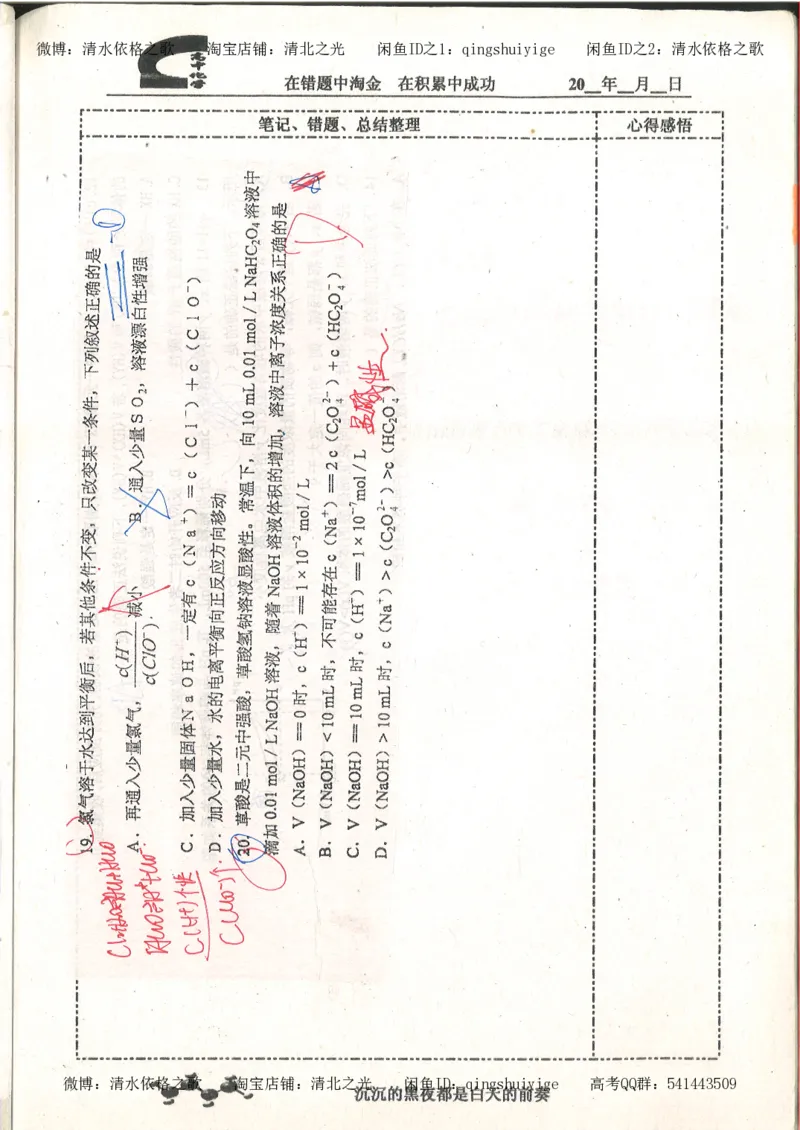 微博：清水依格之歌 淘宝店铺：清北之光 闲鱼ID之1：qingshuiyige 闲鱼ID之2：清水依格之歌
在错题中淘金 在积累中成功 20__年__月__日
笔记、错题、总结整理 心得感悟
19. 氯气溶于水达到平衡后，若其他条件不变，只改变某一条件，下列叙述正确的是
A．再通入少量氯气，c(H⁺)/c(ClO⁻) 减小 B．通入少量SO₂，溶液漂白性增强
C．加入少量固体NaOH，一定有c（Na⁺）==c（Cl⁻）+c（ClO⁻）
D．加入少量水，水的电离平衡向正反应方向移动
20. 草酸是二元中强酸，草酸氢钠溶液显酸性。常温下，向10 mL 0.01 mol／L NaHC₂O₄溶液中
滴加0.01 mol／L NaOH溶液，随着NaOH溶液体积的增加，溶液中离子浓度关系正确的是
A．V（NaOH）==0时，c（H⁺）==1×10⁻² mol／L
B．V（NaOH）<10 mL时，不可能存在c（Na⁺）==2c（C₂O₄²⁻）+c（HC₂O₄⁻）
C．V（NaOH）==10 mL时，c（H⁺）==1×10⁻⁷mol／L
D．V（NaOH）>10 mL时，c（Na⁺）>c（C₂O₄²⁻）>c（HC₂O₄⁻）
①
显碱性
D
c(H⁺)个性
微博：清水依格之歌 淘宝店铺：清北之光 闲鱼ID：qingshuiyige 高考QQ群：541443509
沉沉的黑夜都是白天的前奏